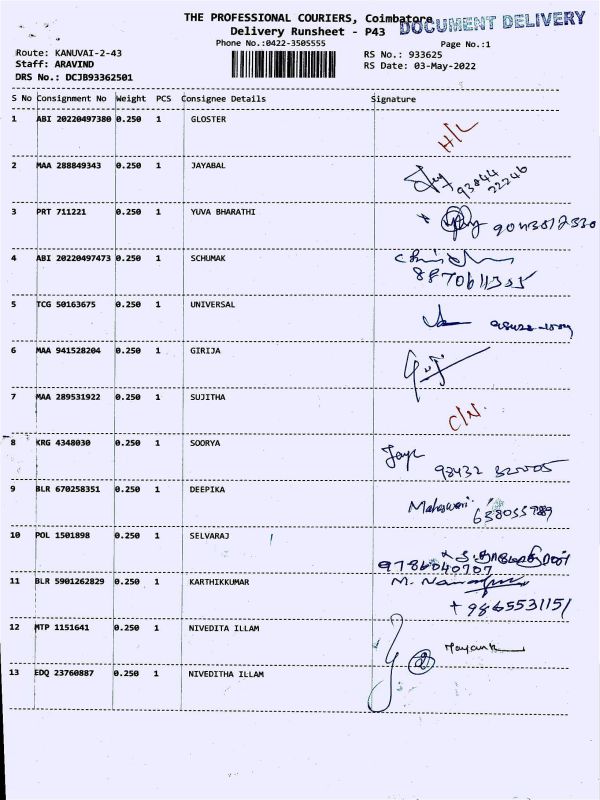 THE PROFESSIONAL COURIERS, Coimbatore
DOCUMENT DELIVERY
Delivery Runsheet - P43
Phone No.:0422-3505555
Page No.:1
Route: KANUVAI-2-43
RS No.: 933625
Staff: ARAVIND
RS Date: 03-May-2022
DRS No.: DCJB93362501
S No Consignment No Weight PCS Consignee Details Signature
1 ABI 20220497380 0.250 1 GLOSTER H/L
2 MAA 288849343 0.250 1 JAYABAL
93844
22246
3 PRT 711221 0.250 1 YUVA BHARATHI
4 ABI 20220497473 0.250 1 SCHUMAK
5 TCG 50163675 0.250 1 UNIVERSAL
6 MAA 941528204 0.250 1 GIRIJA
7 MAA 289531922 0.250 1 SUJITHA C/N.
8 KRG 4348030 0.250 1 SOORYA
9 BLR 670258351 0.250 1 DEEPIKA Maheswari
10 POL 1501898 0.250 1 SELVARAJ
9786040707
11 BLR 5901262829 0.250 1 KARTHIKKUMAR M.
+ 9865531151
12 MTP 1151641 0.250 1 NIVEDITA ILLAM Mayank
13 EDQ 23760887 0.250 1 NIVEDITHA ILLAM